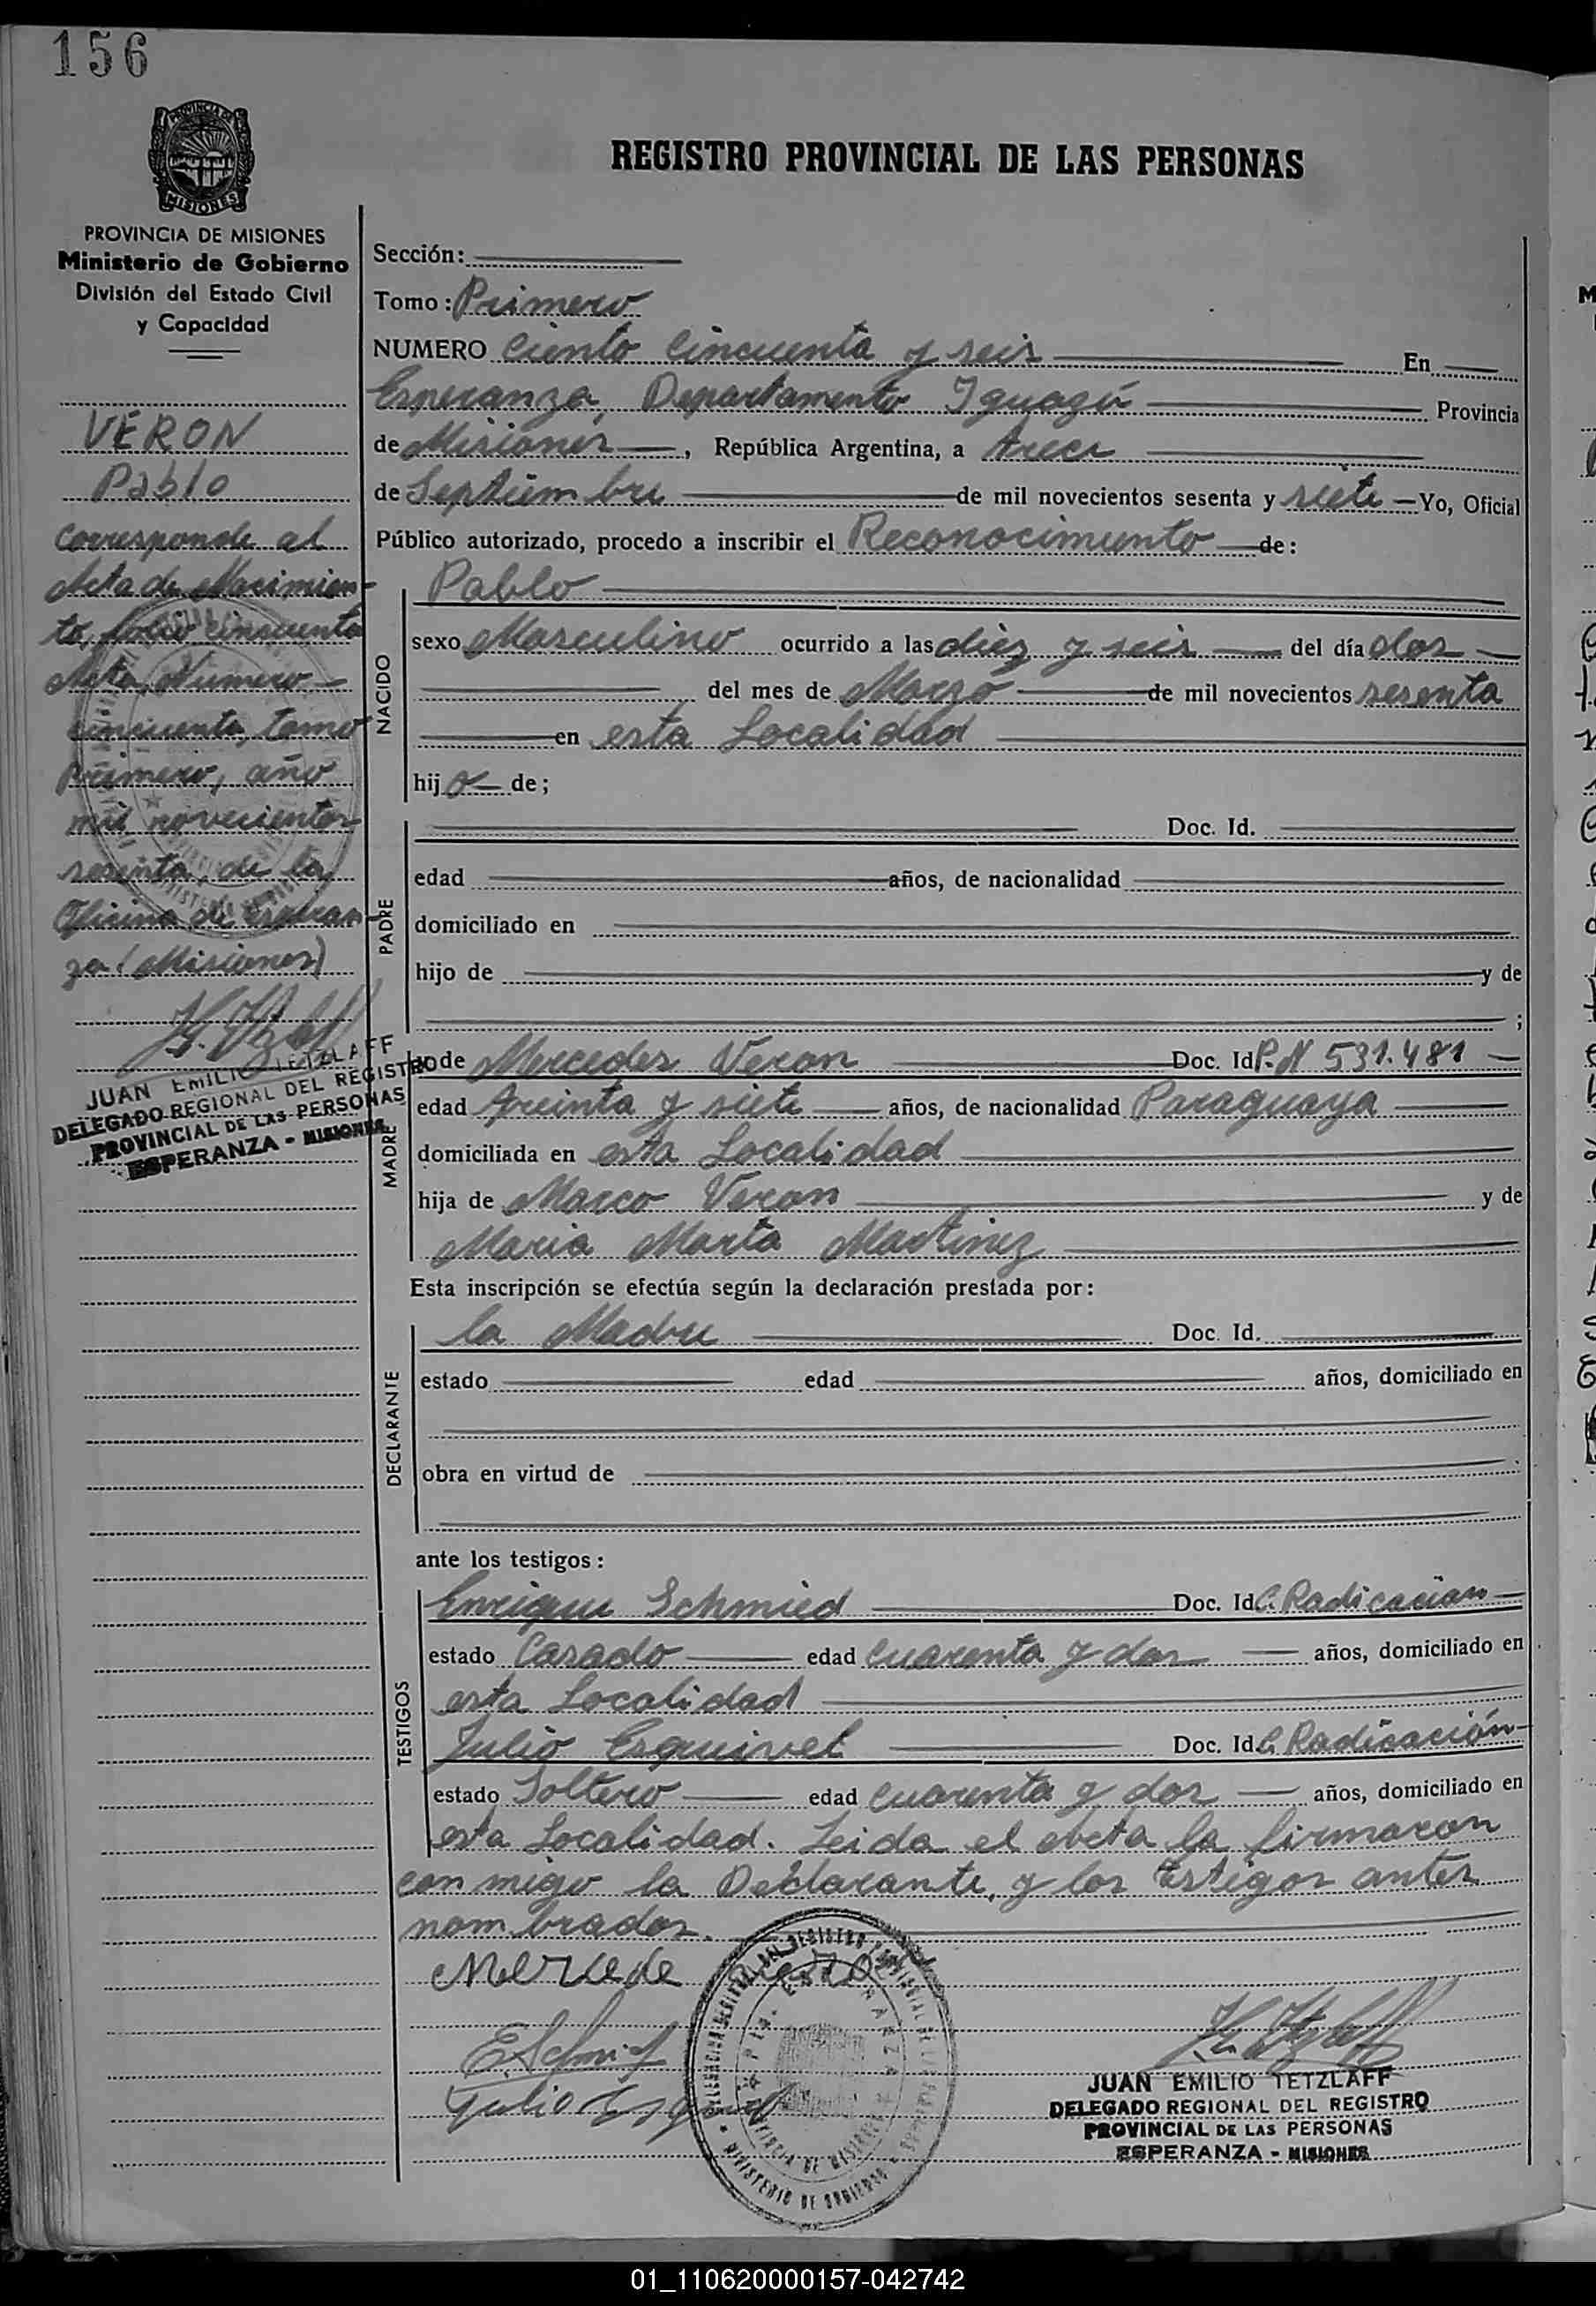 156
PROVINCIA DE
MISIONES
REGISTRO PROVINCIAL DE LAS PERSONAS
PROVINCIA DE MISIONES
Ministerio de Gobierno
División del Estado Civil
y Capacidad
VERON
Pablo
Corresponde al
Acta de Nacimien-
to, folio cincuenta
Acta, Número
cincuenta, tomo
Primero, año
mil novecientos
sesenta, de la
Oficina de Esperan-
za (Misiones)
JUAN EMILIO TETZLAFF
DELEGADO REGIONAL DEL REGISTRO
PROVINCIAL DE LAS PERSONAS
ESPERANZA - MISIONES
Sección:
Tomo: Primero
NUMERO Ciento Cincuenta y seis En
Esperanza, Departamento Iguazú Provincia
de Misiones, República Argentina, a trece
de Septiembre de mil novecientos sesenta y siete Yo, Oficial
Público autorizado, procedo a inscribir el Reconocimiento de:
NACIDO
Pablo
sexo Masculino ocurrido a las diez y seis del día dos
del mes de Marzo de mil novecientos sesenta
en esta Localidad
hijo de;
PADRE
Doc. Id.
edad años, de nacionalidad
domiciliado en
hijo de y de
;
MADRE
y de Mercedes Veron Doc. Id P.N 531.481
edad treinta y siete años, de nacionalidad Paraguaya
domiciliada en esta Localidad
hija de Marco Veron y de
Maria Marta Martinez
Esta inscripción se efectúa según la declaración prestada por:
DECLARANTE
la Madre Doc. Id.
estado edad años, domiciliado en
obra en virtud de
ante los testigos:
TESTIGOS
Enrique Schmied Doc. Id C. Radicacion
estado Casado edad cuarenta y dos años, domiciliado en
esta Localidad
Julio Esquivel Doc. Id C. Radicación
estado Soltero edad cuarenta y dos años, domiciliado en
esta Localidad. Leida el acta la firmaron
con migo la Declarante, y los testigos antes
nombrados.
Mercede
E. Schmied
Julio Esquivel
JUAN EMILIO TETZLAFF
DELEGADO REGIONAL DEL REGISTRO
PROVINCIAL DE LAS PERSONAS
ESPERANZA - MISIONES
01_110620000157-042742